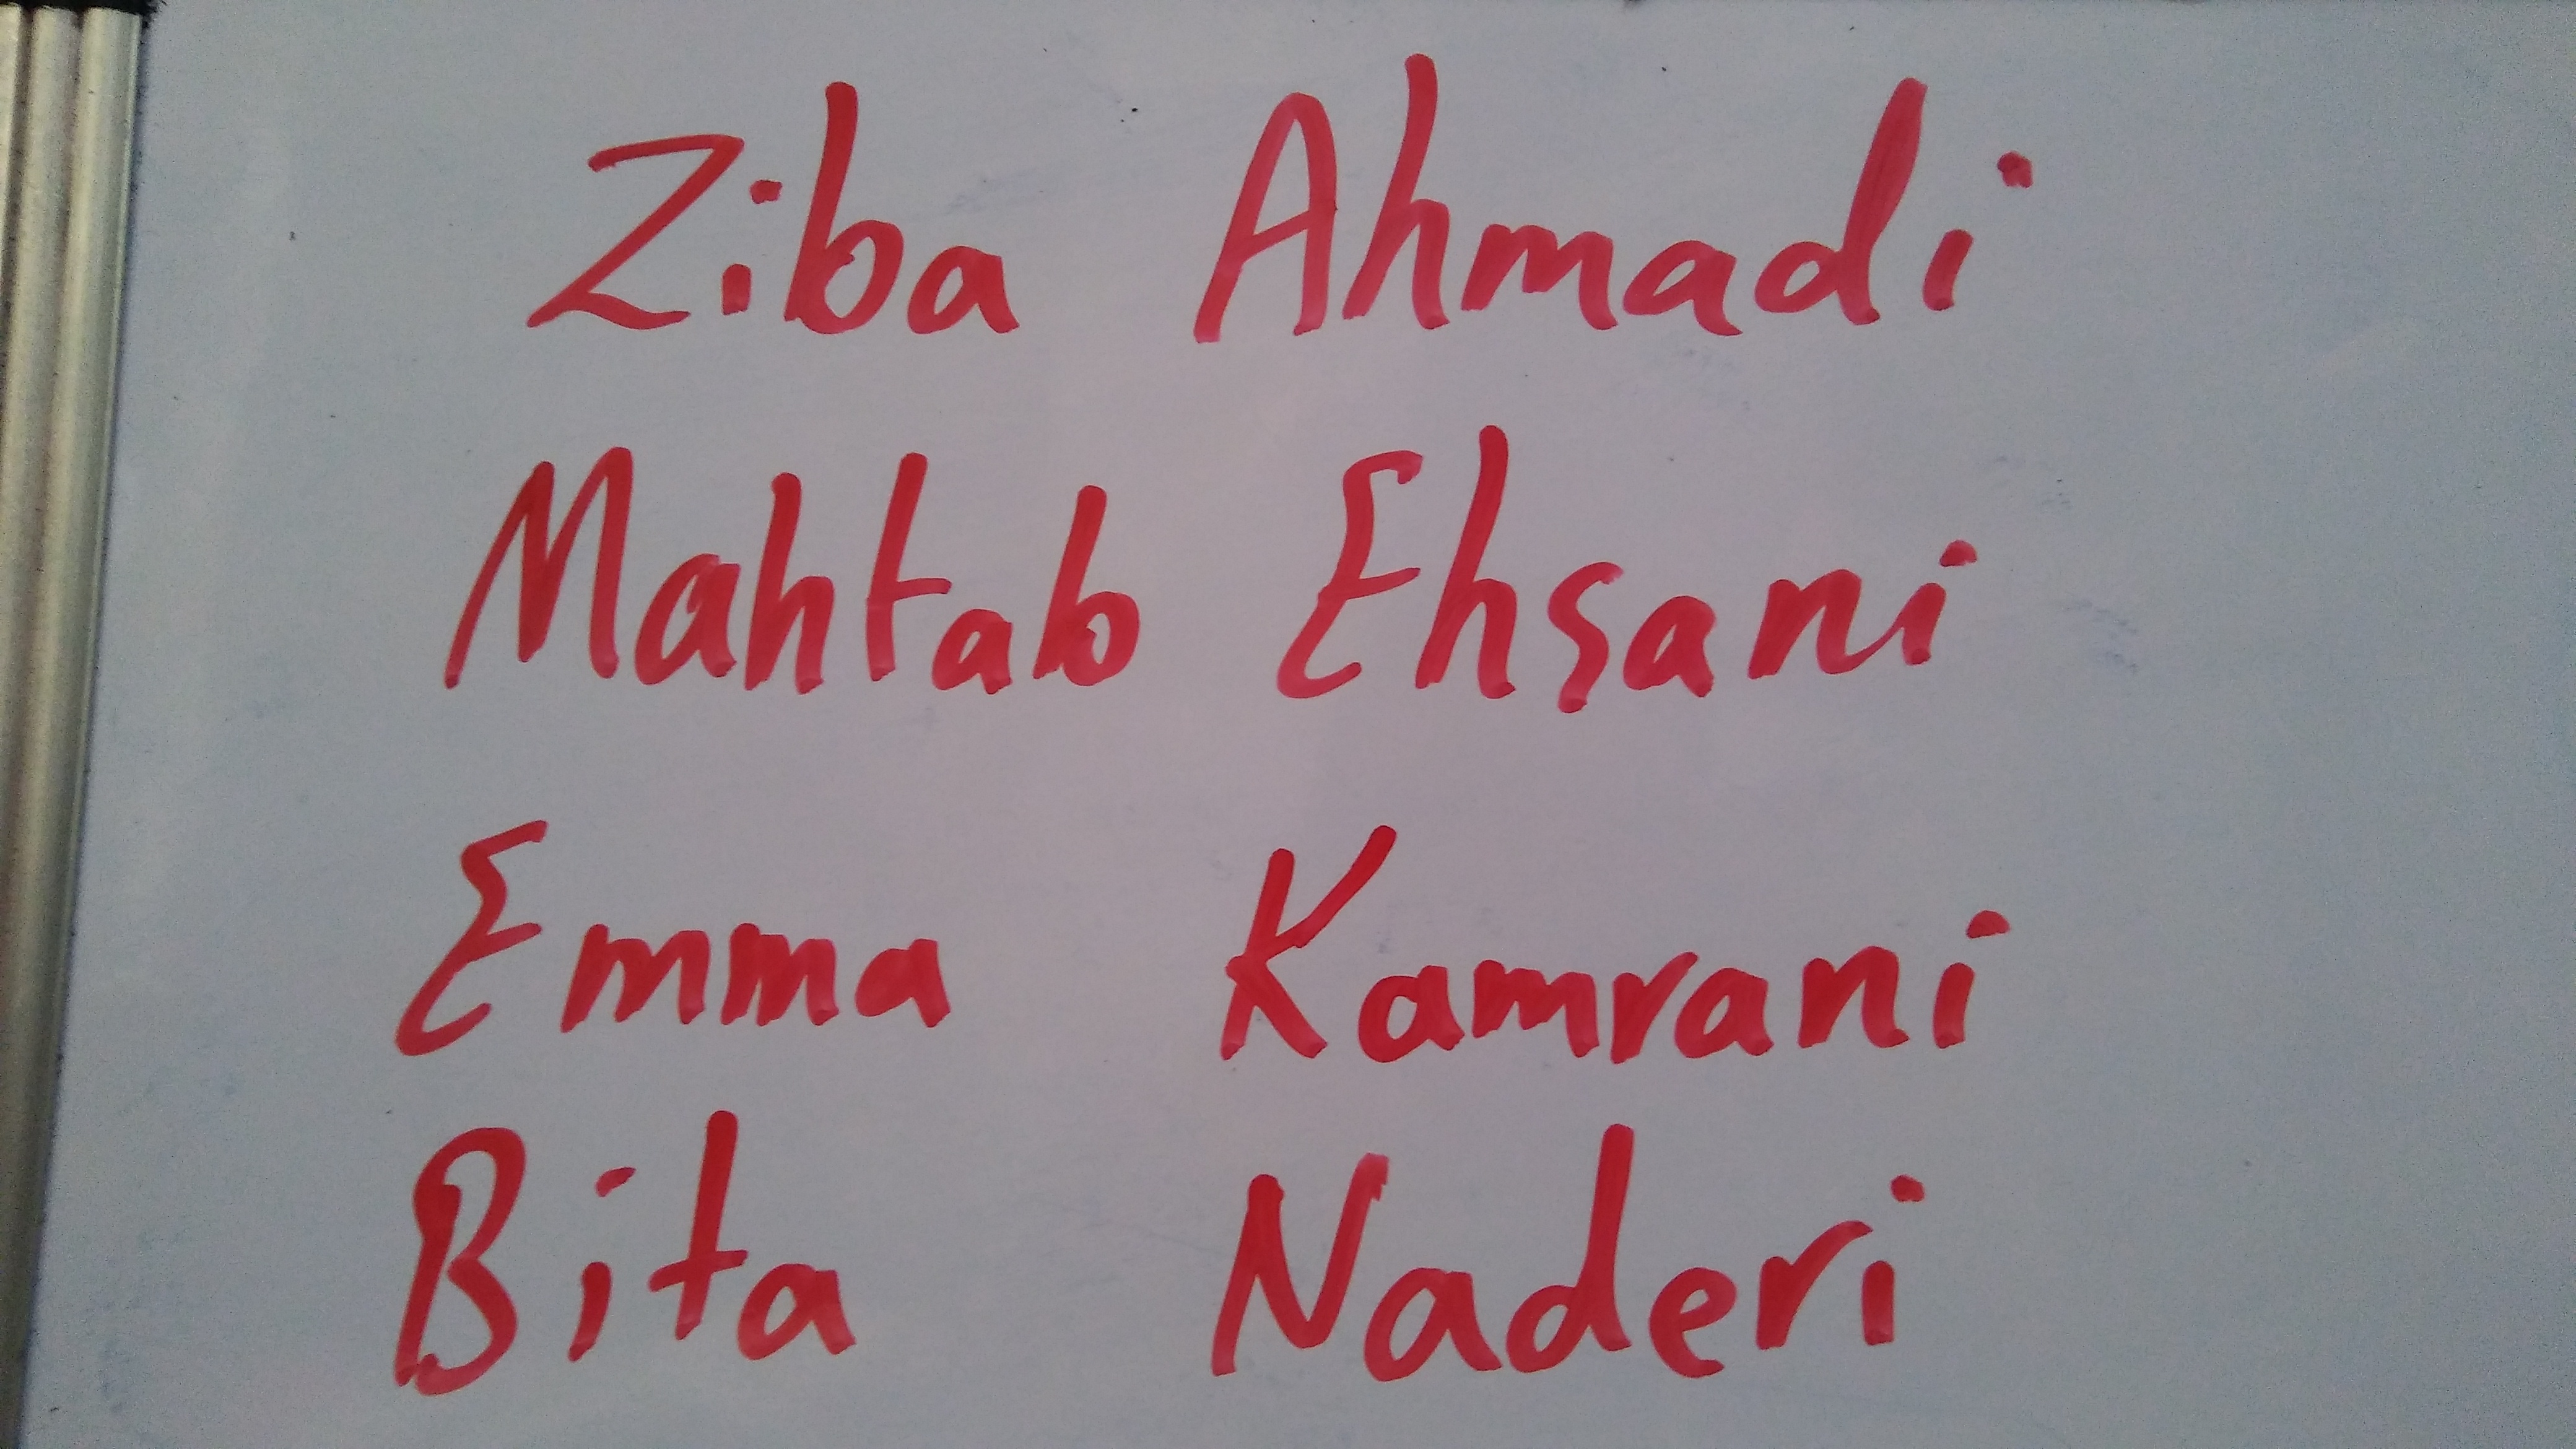 Ziba Ahmadi
Mahtab Ehsani
Emma Kamrani
Bita Naderi